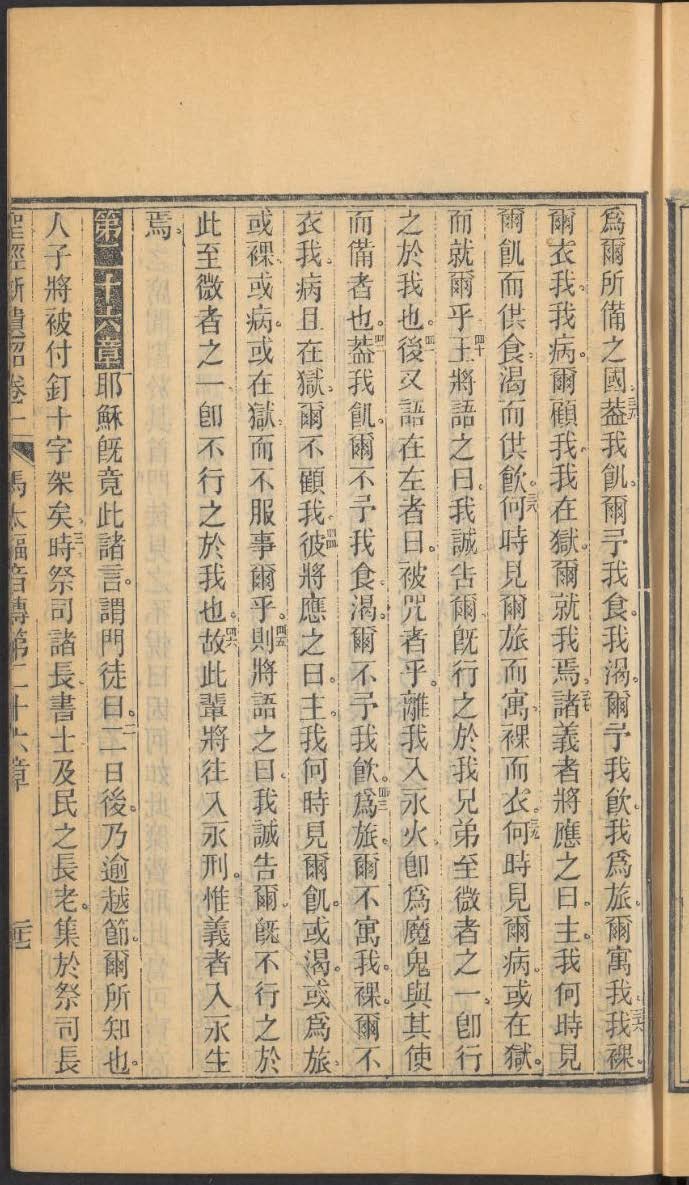 爲爾所備之國。三五葢我飢。爾予我食。我渴。爾予我飮。我爲旅。爾寓我。三六我裸。
爾衣我。我病。爾顧我。我在獄。爾就我焉。三七諸義者將應之曰。主。我何時見
爾飢而供食。渴而供飮。三八何時見爾旅而寓。裸而衣。三九何時見爾病。或在獄。
而就爾乎。四十王將語之曰。我誠告爾。旣行之於我兄弟至微者之一。卽行
之於我也。四一後又語在左者曰。被咒者乎。離我入永火。卽爲魔鬼與其使
而備者也。四二葢我飢。爾不予我食。渴。爾不予我飮。四三爲旅。爾不寓我。裸。爾不
衣我。病且在獄。爾不顧我。四四彼將應之曰。主。我何時見爾飢。或渴。或爲旅。
或裸。或病。或在獄。而不服事爾乎。四五則將語之曰。我誠告爾。旣不行之於
此至微者之一。卽不行之於我也。四六故此輩將往入永刑。惟義者入永生
焉。
第二十六章 耶穌旣竟此諸言。謂門徒曰。二二日後。乃逾越節。爾所知也。
人子將被付釘十字架矣。三時祭司諸長。書士及民之長老。集於祭司長
聖經新遺詔卷一 馬太福音傳第二十六章 三七